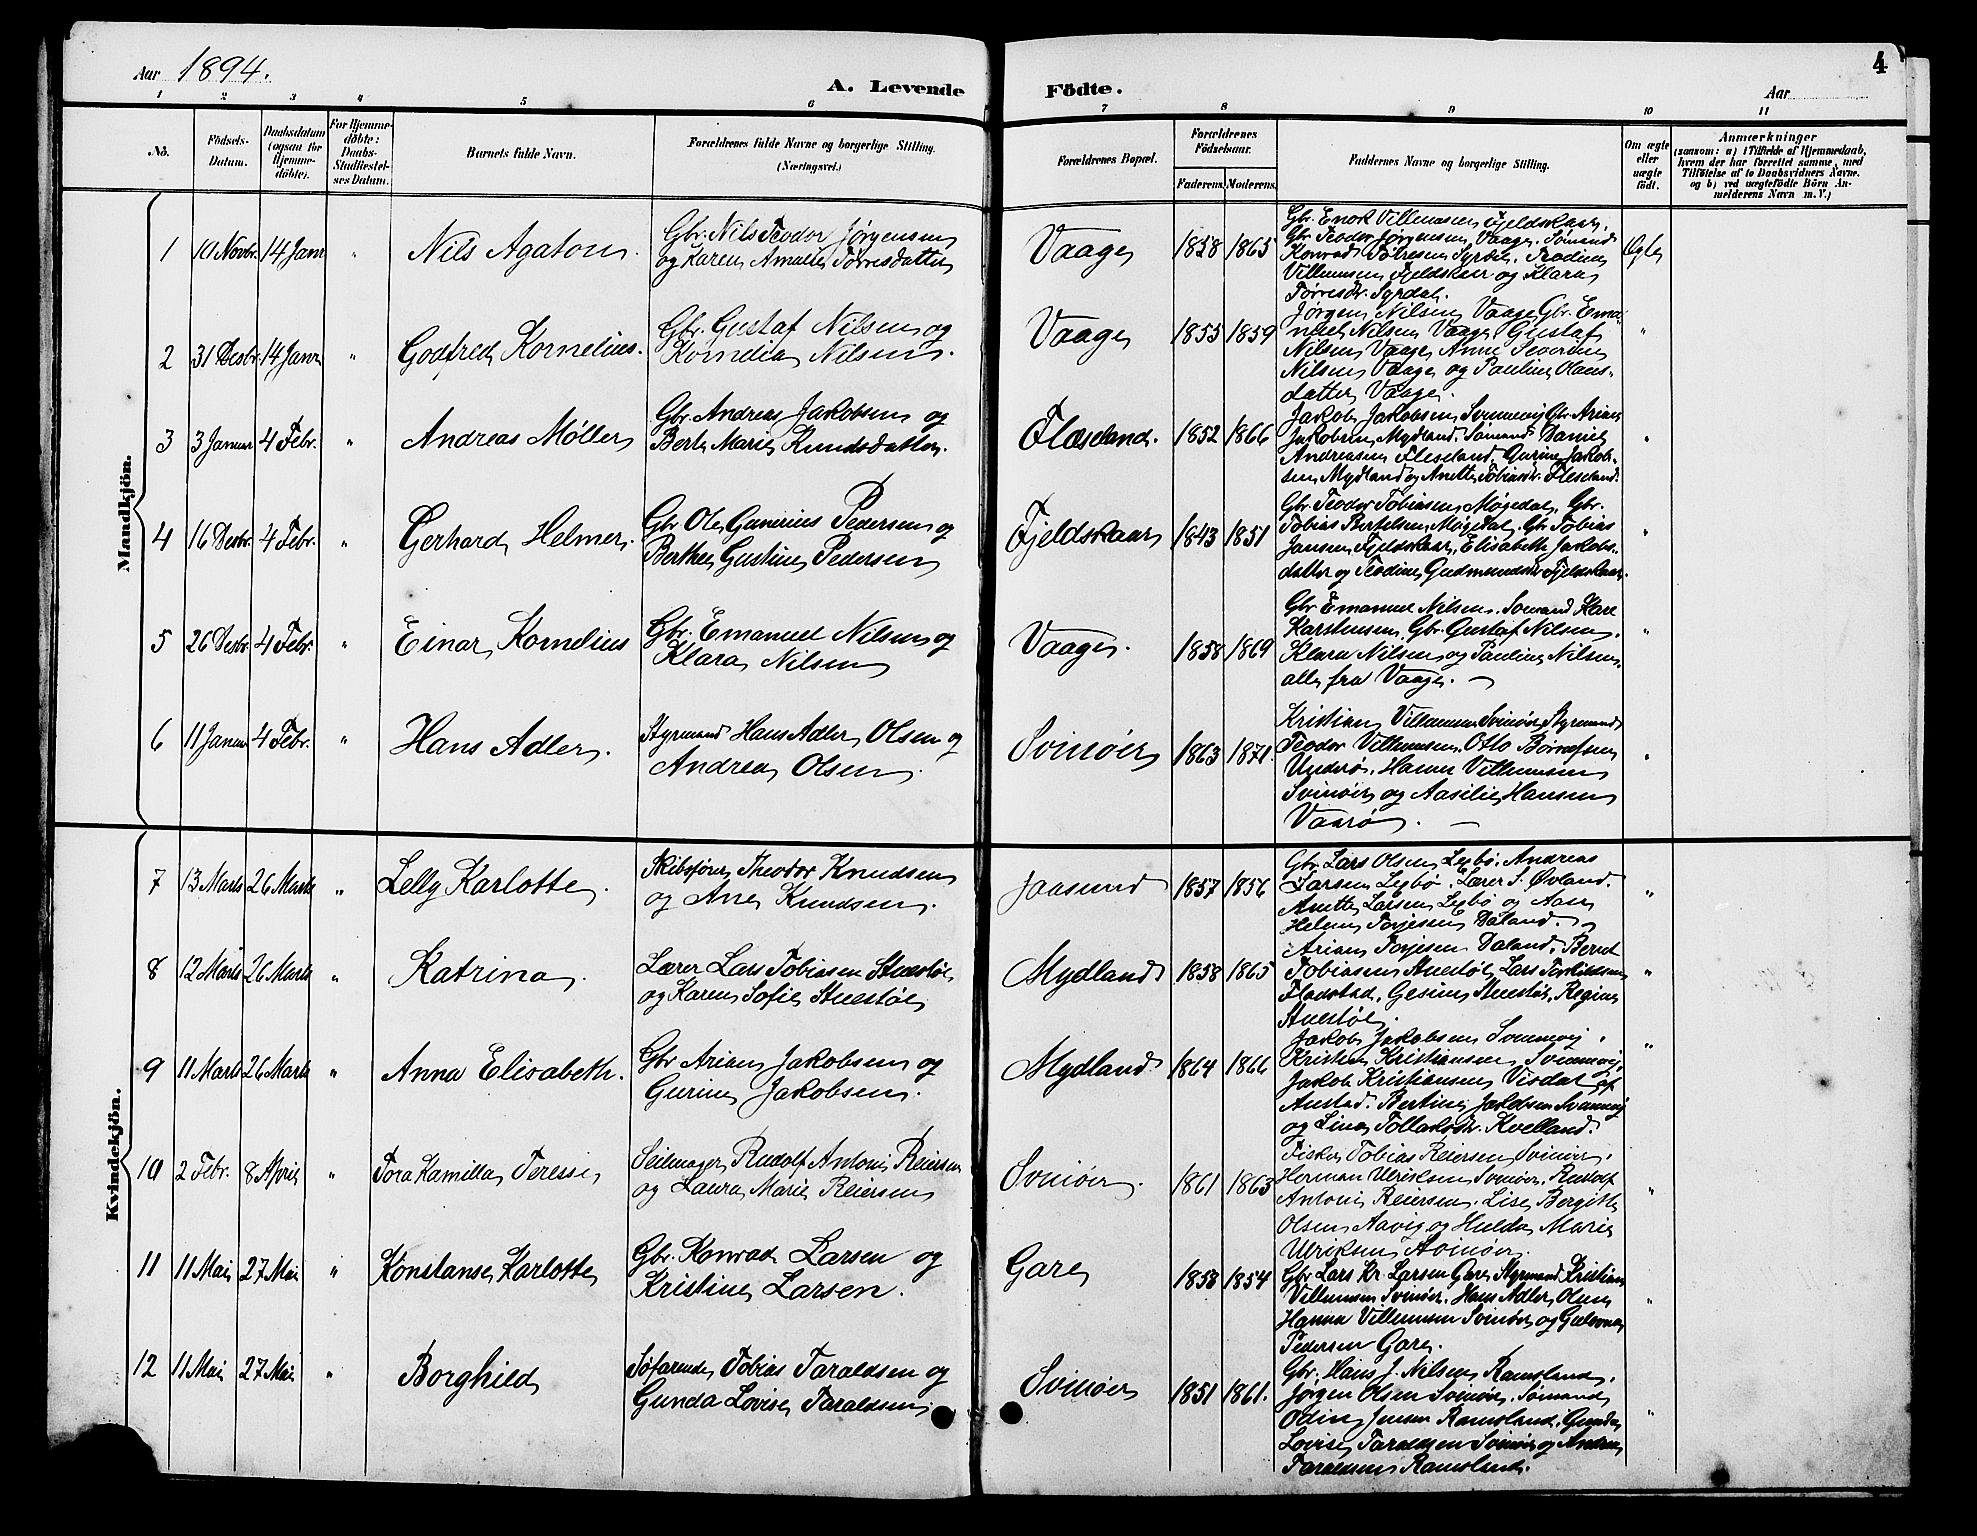 Aar 1894.
A. Levende Födte.
Aar
4
1 2 3 4 5 6 7 8 9 10 11
No.
Födsels-
Datum.
Daabsdatum
(ogsaa for
Hjemme-
döbte).
For Hjemme-
döbte:
Daabs-
Stadfæstel-
ses Datum.
Barnets fulde Navn.
Forældrenes fulde Navne og borgerlige Stilling.
(Næringsvei.)
Forældrenes Bopæl.
Forældrenes
Födselsaar.
Faderens. Moderens.
Faddernes Navne og borgerlige Stilling.
Om ægte
eller
uægte
födt.
Anmærkninger
(saasom: a) i Tilfælde af Hjemmedaab,
hvem der har forrettet samme, med
Tilföielse af to Daabsvidners Navne.
og b) ved uægtefödte Börn An-
melderens Navn m. V.)
Mandkjön.
1 10 Novbr. 14 Janr " Nils Agaton.
Gbr. Nils Teodor Jørgensen
og Karen Amalie Tørresdatter
Vaage 1858 1865
Gbr. Enok Villumsen Fjeldskaar.
Gbr. Teodor Jørgensen, Vaage. Sømand
Konrad Tørresen Syrdal. Teodine
Villumsen Fjeldskaar og Klara
Tørresdr. Syrdal.
Ægte
2 31 Desbr. 14 Janr " Godfred Kornelius.
Gbr. Gustaf Nilsen og
Kornelia Nilsen.
Vaage 1855 1859
Jørgen Nilsen Vaage Gbr. Ema-
nuel Nilsen Vaage, Gustaf
Nilsen Vaage, Anne Severine
Nilsen Vaage og Pauline Olaus-
datter Vaage.
"
3 3 Januar 4 Febr. " Andreas Møller
Gbr. Andreas Jakobsen og
Berte Marie Knudsdatter.
Flæseland. 1852 1866
Jakob Jakobsen Svennevig Gbr. Arian
Jakobsen, Mydland. Sømand Daniel
Andreasen Fleseland. Gurine Jakob-
sen Mydland og Anette Tobiasdr. Fleseland.
"
4 16 Desbr. 4 Febr. " Gerhard Helmer.
Gbr Ole Gunerius Pedersen og
Berthe Gustine Pedersen
Fjeldskaar 1843 1851
Gbr Teodor Tobiasen, Møgedal, Gbr.
Tobias Bertelsen, Møgedal, Gbr Tobias
Jansen, Fjeldskaar, Elisabeth Jakobs-
datter og Teodine Gudmundsdr Fjeldskaar.
"
5 26 Desbr. 4 Febr. " Einar Kornelius
Gbr. Emanuel Nilsen og
Klara Nilsen
Vaage. 1858 1869
Gbr Emanuel Nilsen. Sømand Karl
Karstensen, Gbr. Gustaf Nilsen,
Klara Nilsen og Pauline Nilsen,
alle fra Vaage.
"
6 11 Januar 4 Febr. " Hans Adler.
Styrmand Hans Adler Olsen og
Andrea Olsen.
Svinøir 1863 1871.
Kristian Villumsen Svinøir, Styrmand
Teodor Villumsen, Otto
Underø. Hanna Villumsen
Svinøir og Aasilie Hansen
Vaarø.
"
Kvindekjön.
7 13 Marts 26 Marts " Lelly Karlotte.
Skibsfører Theodor Knudsen
og Ane Knudsen.
Jaasund 1857 1856
Gbr Lars Olsen Legbø. Andreas
Larsen Legbø. Lærer S. Øvland.
Anette Larsen Legbø og Aase
Helene Torjesen Daland.
"
8 12 Marts 26 Marts " Katrina.
Lærer Lars Tobiasen Stuestøl
og Karen Sofie Stuestøl
Mydland 1858 1865
Arian Torjesen Daland. Bernt
Tobiasen Stuestøl, Lars Torkildsen
Fladstad. Gesine Stuestøl. Regine
Stuestøl.
"
9 11 Marts 26 Marts " Anna Elisabeth.
Gbr Arian Jakobsen og
Gurine Jakobsen.
Mydland 1864 1866
Jakob Jakobsen Svennevig,
Kristen Kristiansen Svennevig,
Jakob Kristiansen Visdal af
Austad. Bertine Jakobsen Svennevig
og Lina Tollaksdr. Kvelland.
"
10 2 Febr. 8 April " Tora Kamilla Teresse
Seilmager Rudolf Antoni Reiersen
og Laura Marie Reiersen
Svinøir. 1861 1863
Fisker Tobias Reiersen Svinøir,
Herman Ulriksen Svinøir, Rudolf
Antoni Reiersen. Lise Bergitte
Olsen Aavig og Hulda Marie
Ulriksen Svinøir.
"
11 11 Mai 27 Mai " Konstanse Karlotte
Gbr. Konrad Larsen og
Kristine Larsen.
Gare 1858 1854
Gbr Lars Kr. Larsen Gare Styrmand Kristian
Villumsen Svinøir. Hans Adler Olsen
Hanna Villumsen Svinøir og
Pedersen Gare.
"
12 11 Mai 27 Mai " Borghild
Søfarende Tobias Taraldsen og
Gunda Lovise Taraldsen
Svinøir 1851 1861.
Gbr. Hans J. Nilsen Ramsland.
Jørgen Olsen Svinøir. Sømand
Odin Jensen Ramsland. Gunda
Lovise Taraldsen Svinøir og Andrea
Taraldsen Ramsland.
"